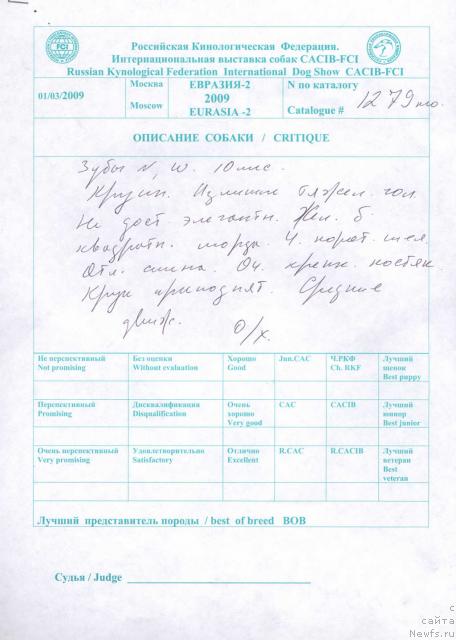 FCI
Российская Кинологическая Федерация.
Интернациональная выставка собак CACIB-FCI
Russian Kynological Federation International Dog Show CACIB-FCI
01/03/2009
Москва
Moscow
ЕВРАЗИЯ-2
2009
EURASIA -2
N по каталогу
Catalogue #
1279
ОПИСАНИЕ СОБАКИ / CRITIQUE
Зубы N, W. 10 мес.
Крупн. Излишне тяжел. гол.
Не дост. элегантн. Жел. б.
квадратн. морда. Ч. корот. шея.
Отл. спина. Оч. крепк. костяк
Круп приподнят. Средние
движ. О/х.
Не перспективный
Not promising
Без оценки
Without evaluation
Хорошо
Good
Jun.CAC
Ч.РКФ
Ch. RKF
Лучший
щенок
Best puppy
Перспективный
Promising
Дисквалификация
Disqualification
Очень
хорошо
Very good
CAC
CACIB
Лучший
юниор
Best junior
Очень перспективный
Very promising
Удовлетворительно
Satisfactory
Отлично
Excellent
R.CAC
R.CACIB
Лучший
ветеран
Best
veteran
Лучший представитель породы / best of breed BOB
Судья / Judge
с
сайта
Newfs.ru